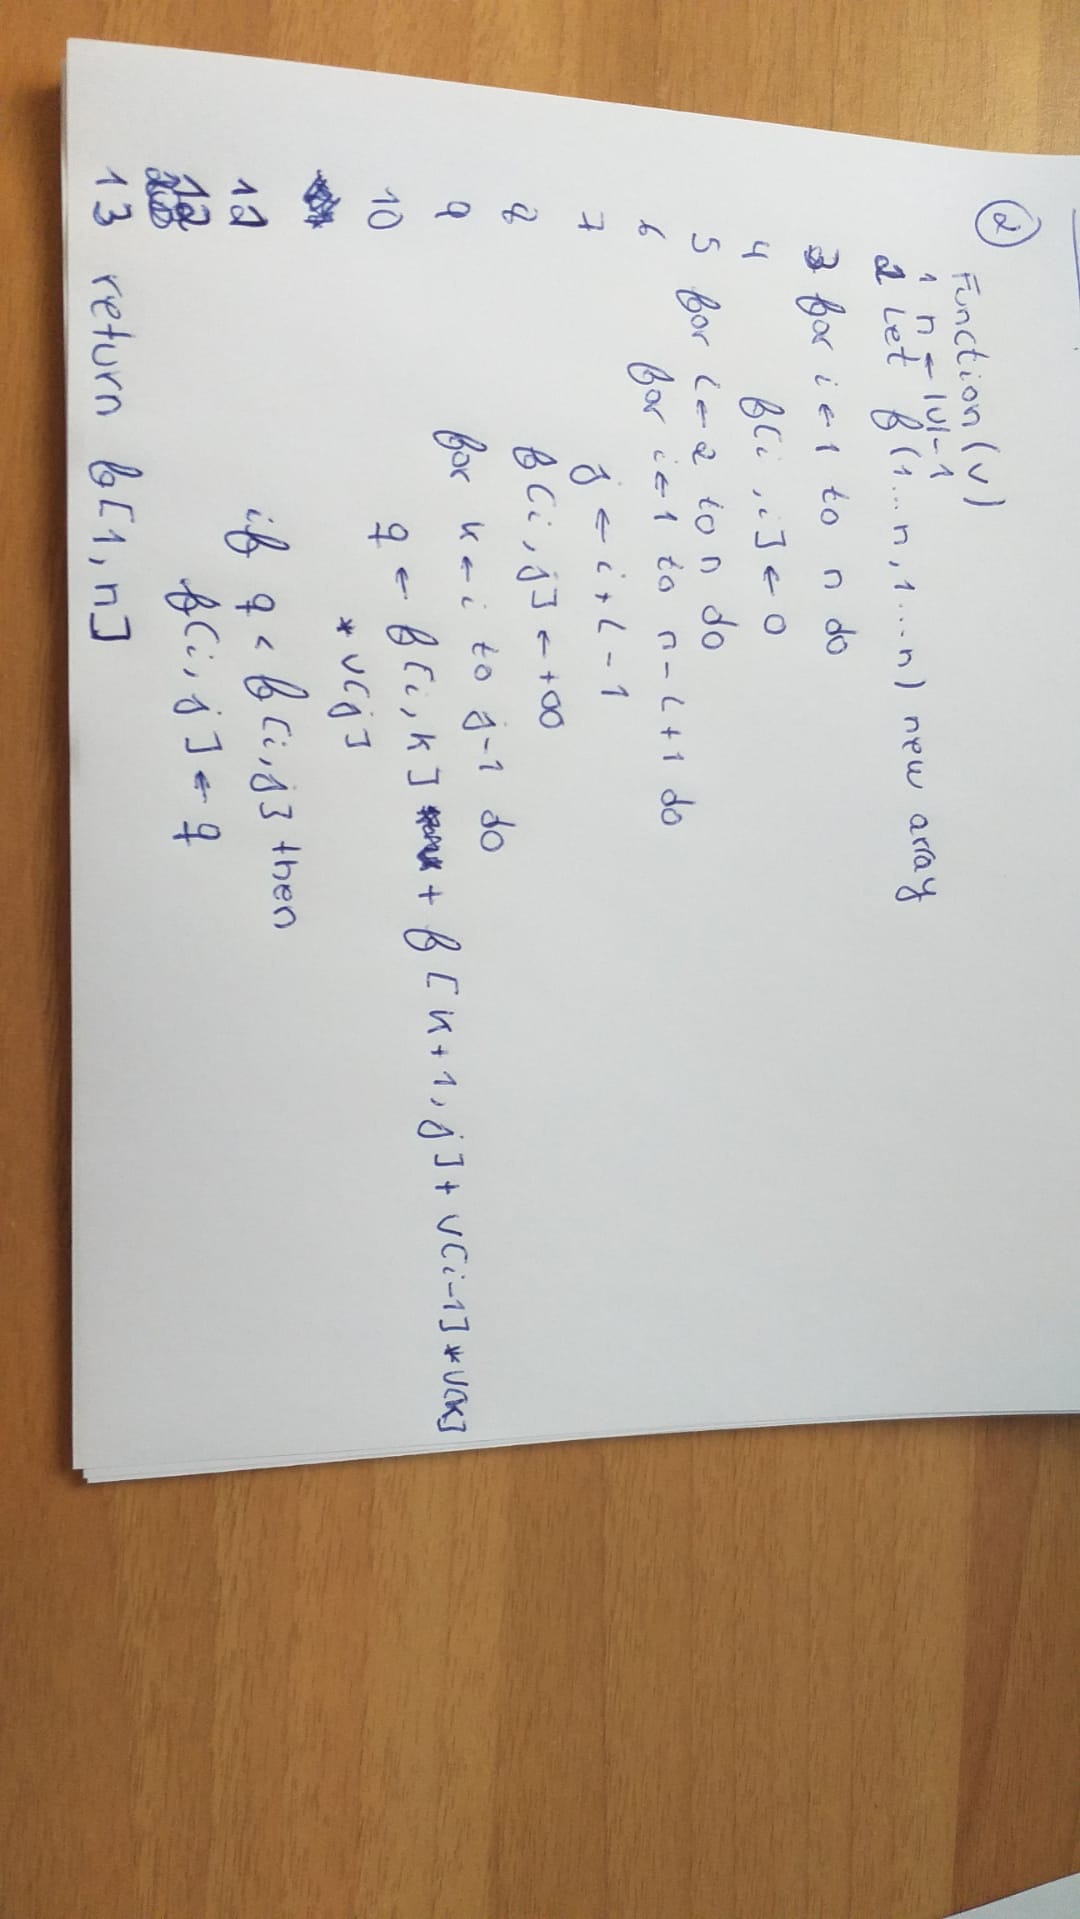 ②
Function(v)
1 n ← |v|-1
2 Let f(1...n,1...n) new array
3 for i ← 1 to n do
4 f[i,i] ← 0
5 for l ← 2 to n do
6 for i ← 1 to n-l+1 do
7 j ← i+l-1
8 f[i,j] ← +∞
9 for k ← i to j-1 do
10 q ← f[i,k] + f[k+1,j] + v[i-1] * v[k]
* v[j]
11 if q < f[i,j] then
12 f[i,j] ← q
13 return f[1,n]